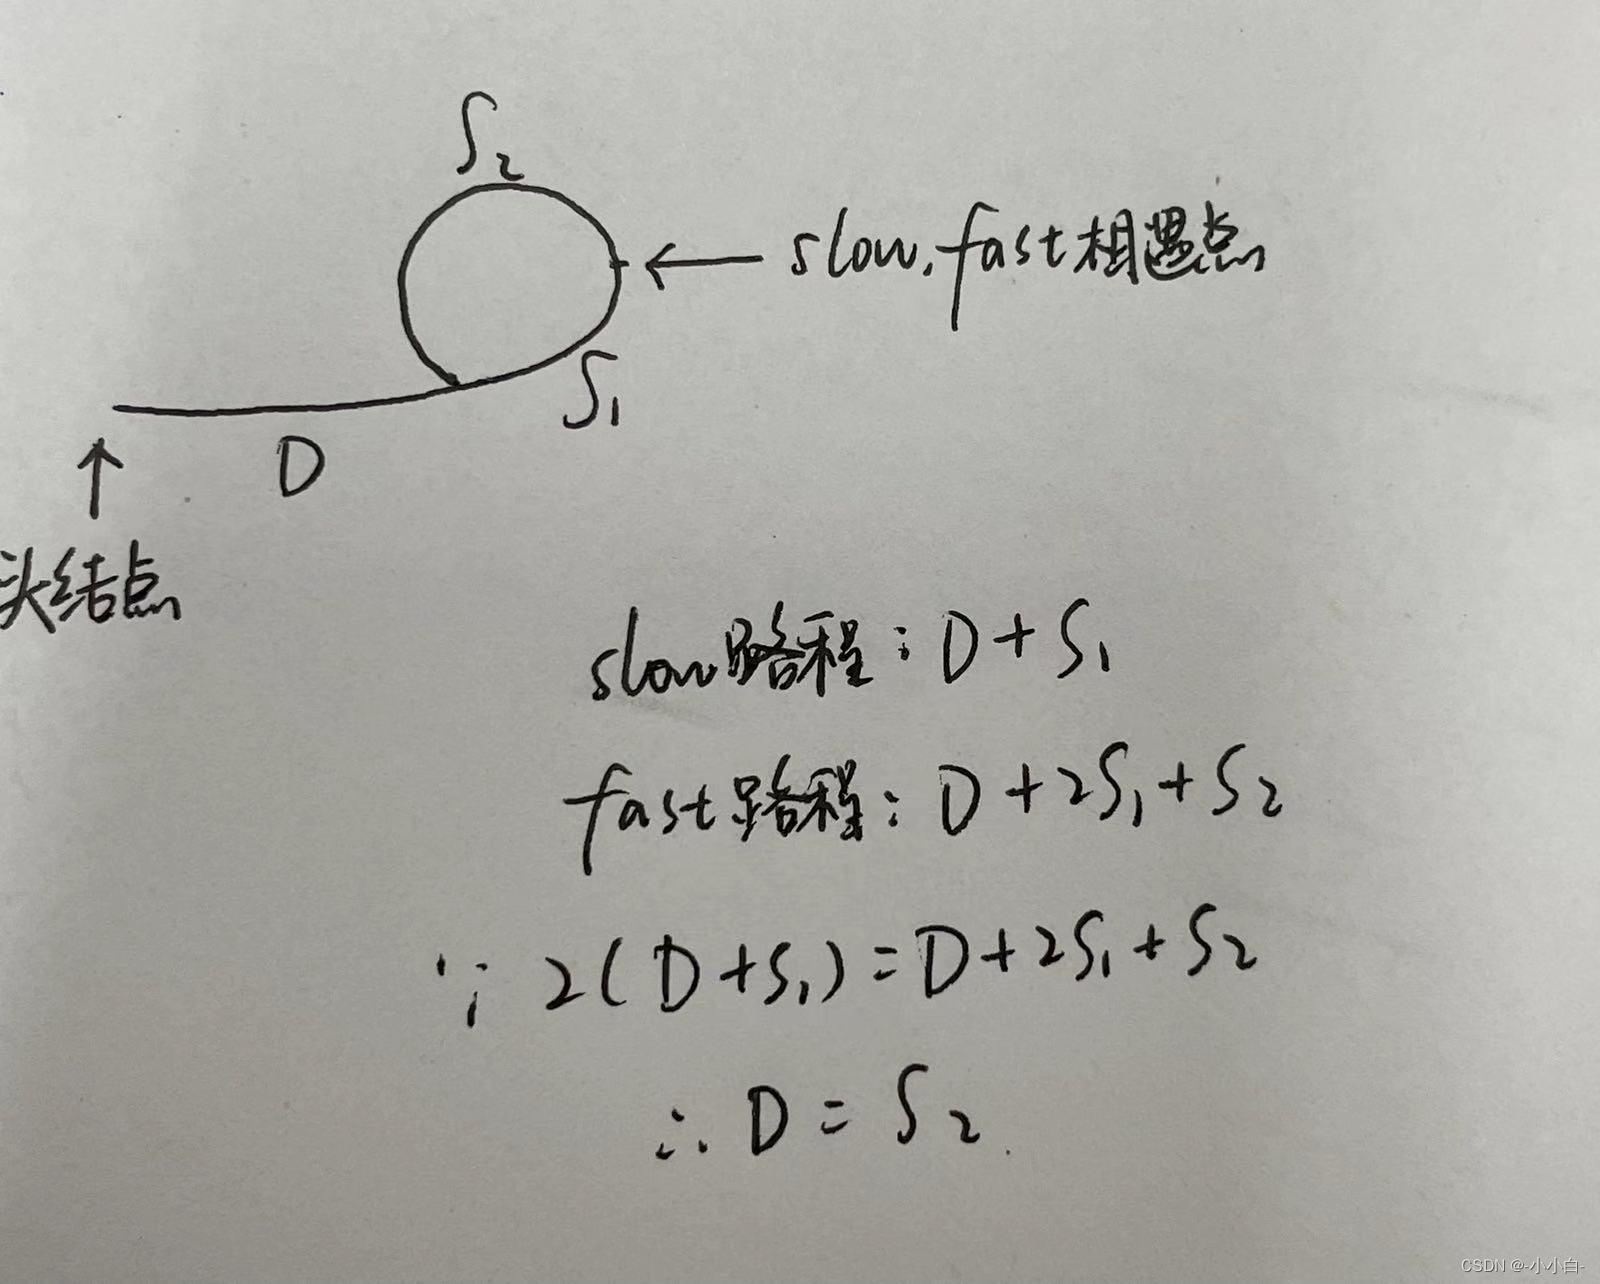 S₂
slow,fast相遇点
S₁
D
头结点
slow路程:D+S₁
fast路程:D+2S₁+S₂
∵ 2(D+S₁)=D+2S₁+S₂
∴ D=S₂
CSDN @-小小白-